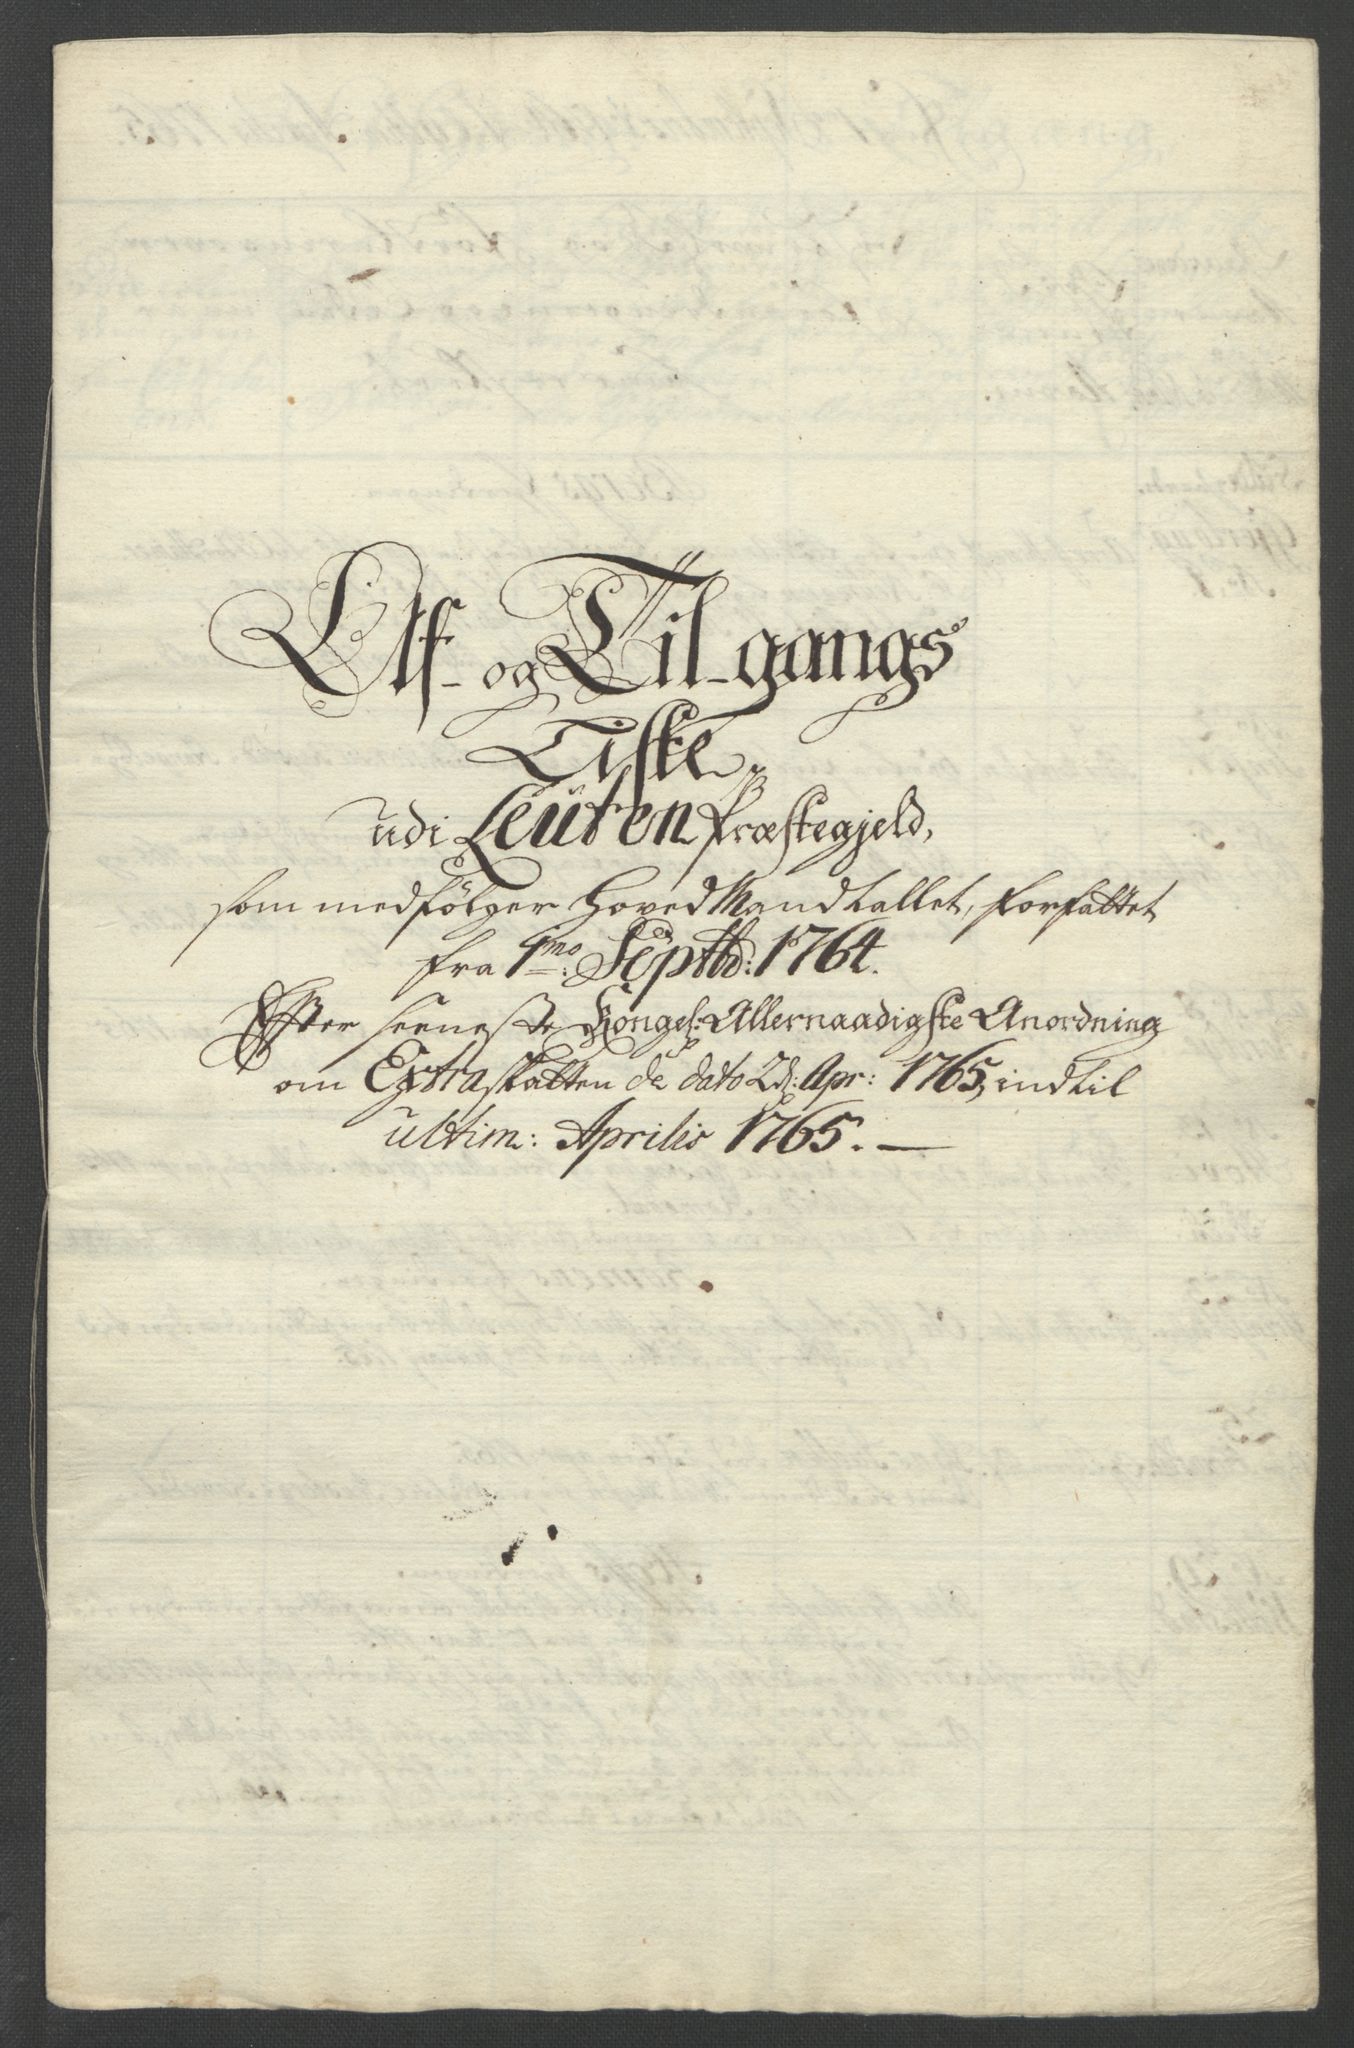 Af- og Til-gangs
Liste
udi Leuten Præstegjeld,
som medfölger Hoved Mandtallet, forfattet
fra 1mo: Septbr: 1764.
Efter seeneste Kongel: Allernaadigste Anordning
om Extraskatten de dato 2d: Apr: 1765, indtil
ultim: Aprilis 1765. —